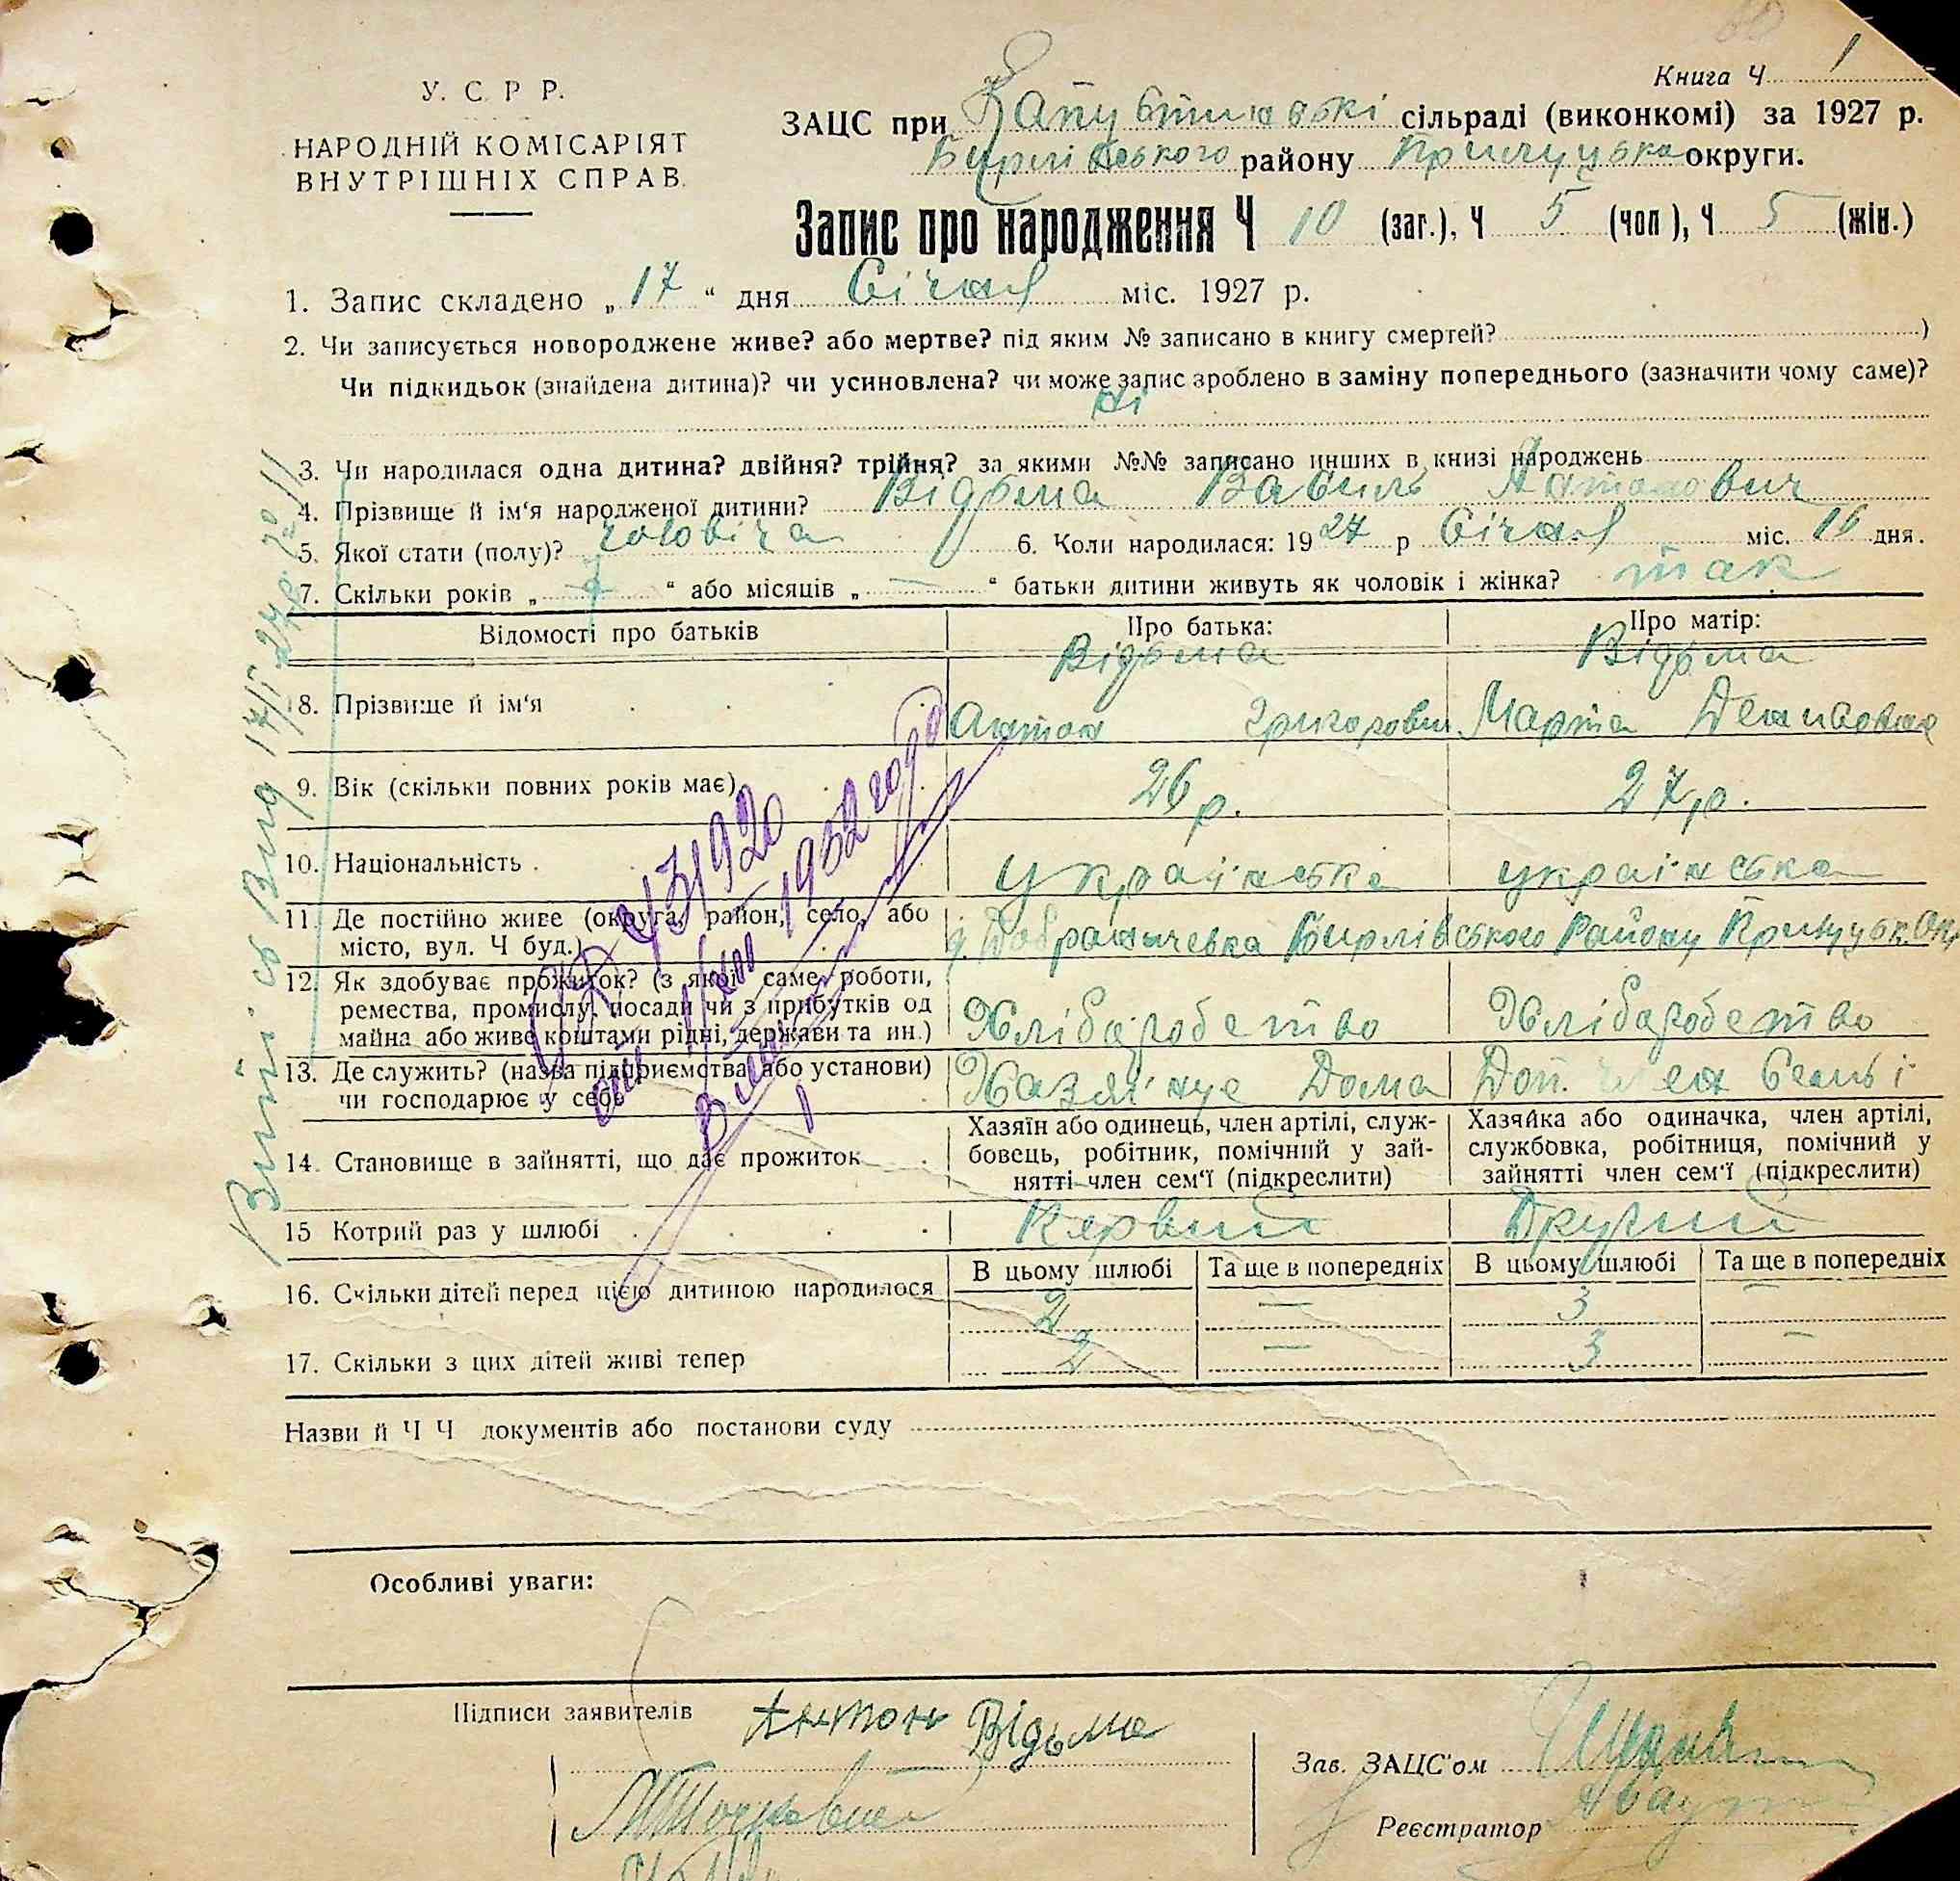 Книга Ч 1
У. С. Р. Р.
НАРОДНІЙ КОМІСАРІЯТ
ВНУТРІШНІХ СПРАВ.
ЗАЦС при Капустинські сільраді (виконкомі) за 1927 р.
Бирлівського району Прилуцька округи.
Запис про народження Ч 10 (заг.), Ч 5 (чол), Ч 5 (жін.)
1. Запис складено „ 17 “ дня Січня міс. 1927 р.
2. Чи записується новороджене живе? або мертве? під яким № записано в книгу смертей? )
Чи підкидьок (знайдена дитина)? чи усиновлена? чи може запис зроблено в заміну попереднього (зазначити чому саме)?
Ні
3. Чи народилася одна дитина? двійня? трійня? за якими №№ записано инших в книзі народжень
4. Прізвище й ім‘я народженої дитини? Відьма Василь Антонович
5. Якої стати (полу)? чоловіча 6. Коли народилася: 1927 р Січня міс. 16 дня.
7. Скільки років „ “ або місяців „ — “ батьки дитини живуть як чоловік і жінка? так
Відомості про батьків Про батька: Про матір:
8. Прізвище й ім‘я Відьма Антон Григорович Відьма Марта Денисовна
9. Вік (скільки повних років має) 26 р. 27 р.
10. Національність українська українська
11. Де постійно живе (округа, район, село, або
місто, вул. Ч буд.) Бирлівського Району Прилуцьк. Окр
12. Як здобуває прожиток? (з якої саме роботи,
ремества, промислу, посади чи з прибутків од
майна або живе коштами рідні, держави та ин.) Хліборобство Хліборобство
13. Де служить? (назва підприємства або установи)
чи господарює у себе Хазяїнує Дома Доп. член Семьі
14. Становище в зайнятті, що дає прожиток
Хазяїн або одинець, член артілі, служ-
бовець, робітник, помічний у зай-
нятті член сем‘ї (підкреслити)
Хазяйка або одиначка, член артілі,
службовка, робітниця, помічний у
зайнятті член сем‘ї (підкреслити)
15 Котрий раз у шлюбі Первий Другий
В цьому шлюбі Та ще в попередніх В цьому шлюбі Та ще в попередніх
16. Скільки дітей перед цією дитиною народилося 2 — 3 —
17. Скільки з цих дітей живі тепер 2 — 3 —
Назви й Ч Ч документів або постанови суду
Особливі уваги:
Підписи заявителів Антон Відьма
Зав. ЗАЦС'ом
Реєстратор
1952 года